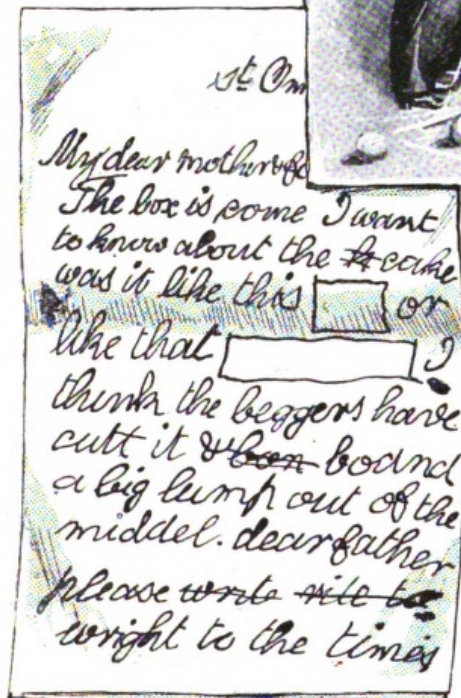 St. Om
My dear mother & fa
The box is come I want
to know about the cake
was it like this or
like that I
think the beggers have
cutt it & boand
a big lump out of the
middel. dear father
please write rite to
wright to the times